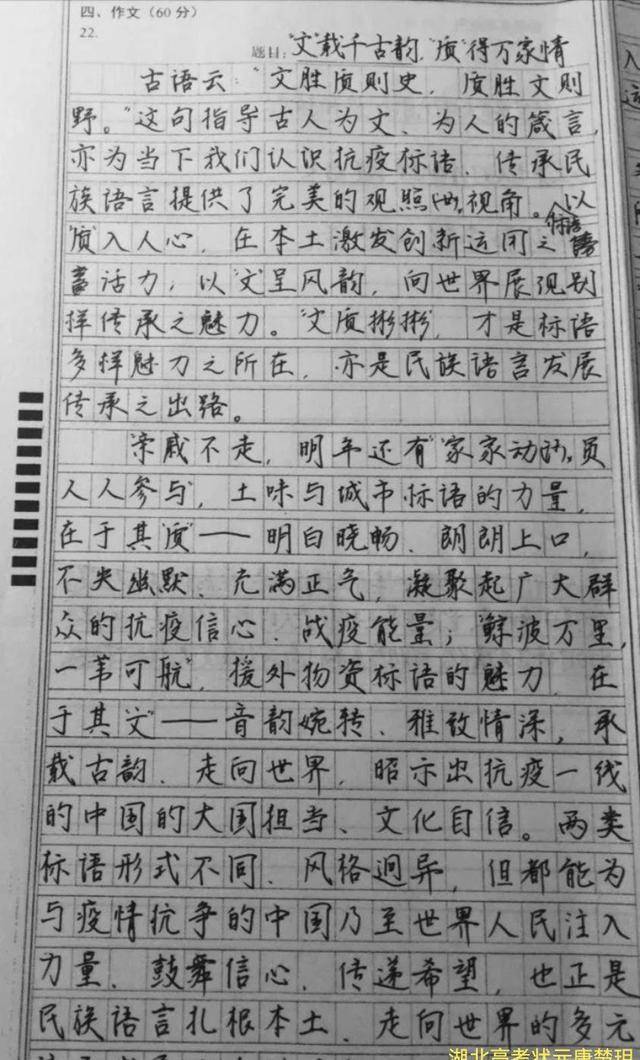 四、作文（60分）
22.
题目："文"载千古韵，"质"得万家情
古语云："文胜质则史，质胜文则
野。"这句指导古人为文、为人的箴言，
亦为当下我们认识抗疫标语、传承民
族语言提供了完美的观照 视角。以
"质"入人心，在本土激发创新运用之标语
活力；以"文"呈风韵，向世界展现别
样传承之魅力。"文质彬彬"，才是标语
多样魅力之所在，亦是民族语言发展
传承之出路。
"亲戚不走，明年还有""家家动员，
人人参与"，土味与城市标语的力量，
在于其"质"——明白晓畅、朗朗上口，
不失幽默、充满正气，凝聚起广大群
众的抗疫信心、战疫能量；"鲸波万里，
一苇可航"，援外物资标语的魅力，在
于其"文"——音韵婉转、雅致情深，承
载古韵、走向世界，昭示出抗疫一线
的中国的大国担当、文化自信。两类
标语形式不同、风格迥异，但都能为
与疫情抗争的中国乃至世界人民注入
力量、鼓舞信心、传递希望，也正是
民族语言扎根本土、走向世界的多元
湖北高考状元唐楚玥